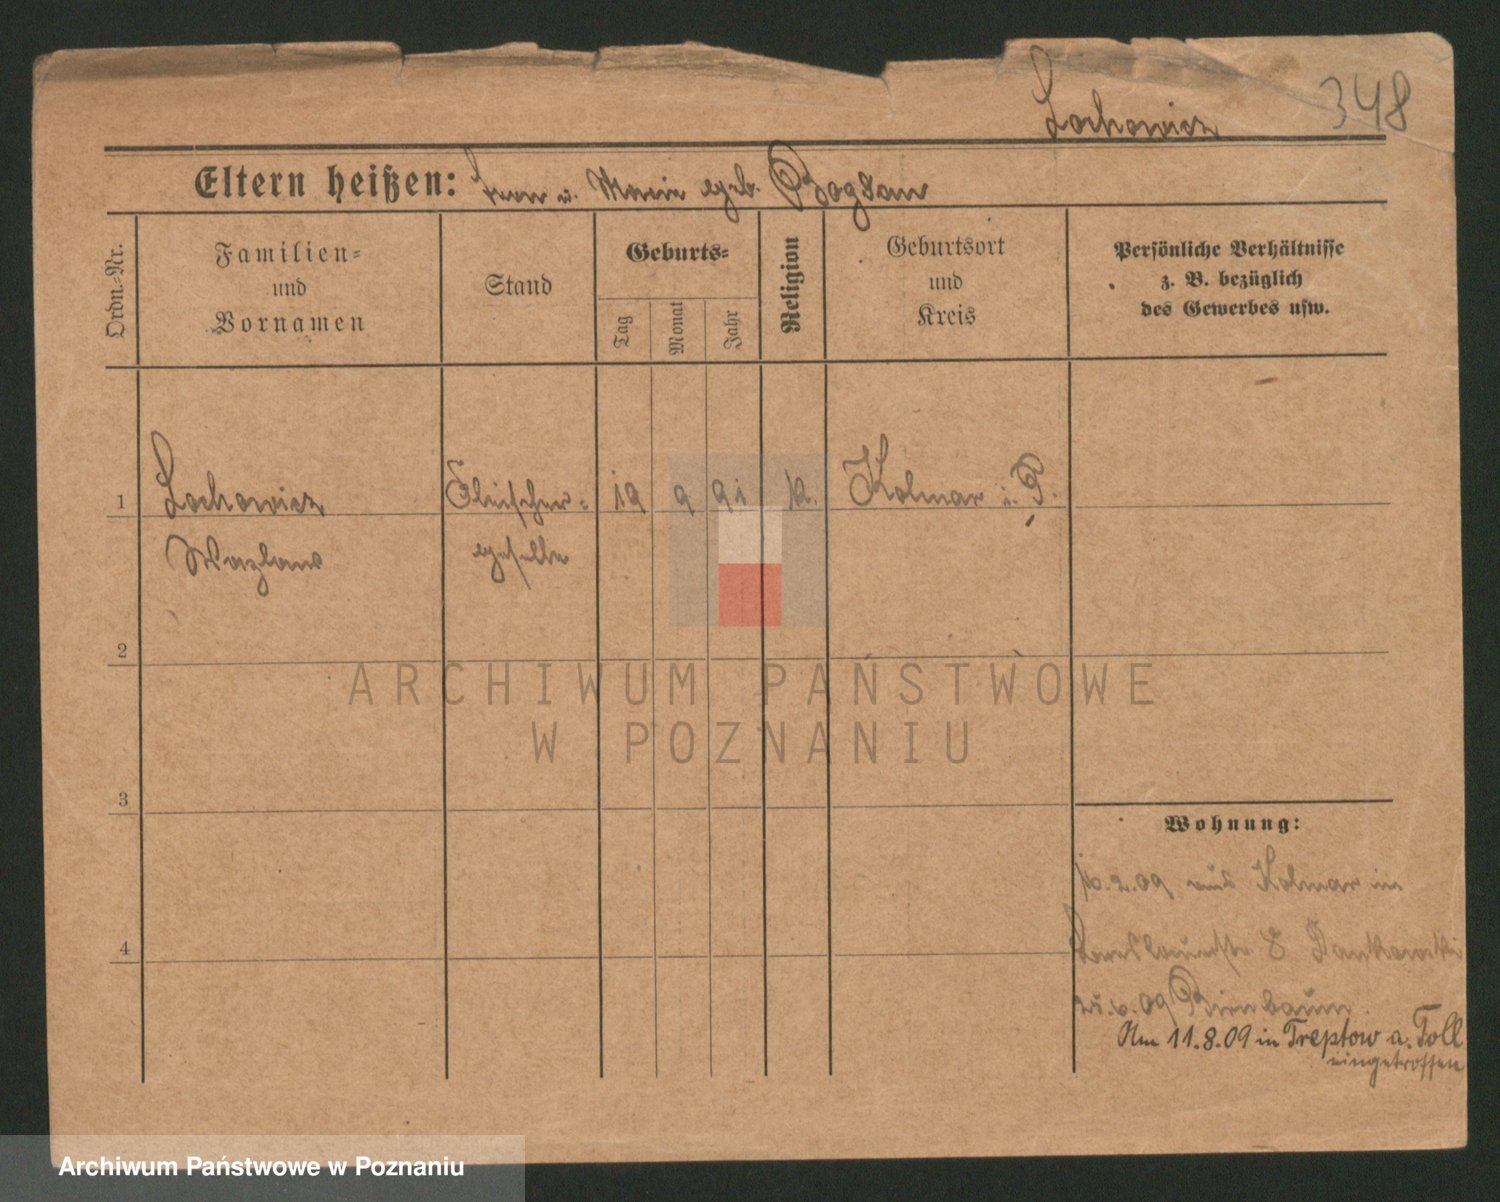 348
Lochowicz
Eltern heißen: u. Marie geb. Bogdan
Ordn.-Nr.
Familien-
und
Vornamen
Stand
Geburts-
Tag
Monat
Jahr
Religion
Geburtsort
und
Kreis
Persönliche Verhältnisse
z. B. bezüglich
des Gewerbes usw.
1 Lochowicz Fleischer- 19 9 91 k. Kolmar i. P.
Wazlaw geselle
2
ARCHIWUM PAŃSTWOWE
W POZNANIU
3
Wohnung:
2.09 aus Kolmar in
4
8
09 Birnbaum.
Am 11.8.09 in Treptow a. Toll
eingetroffen
Archiwum Państwowe w Poznaniu